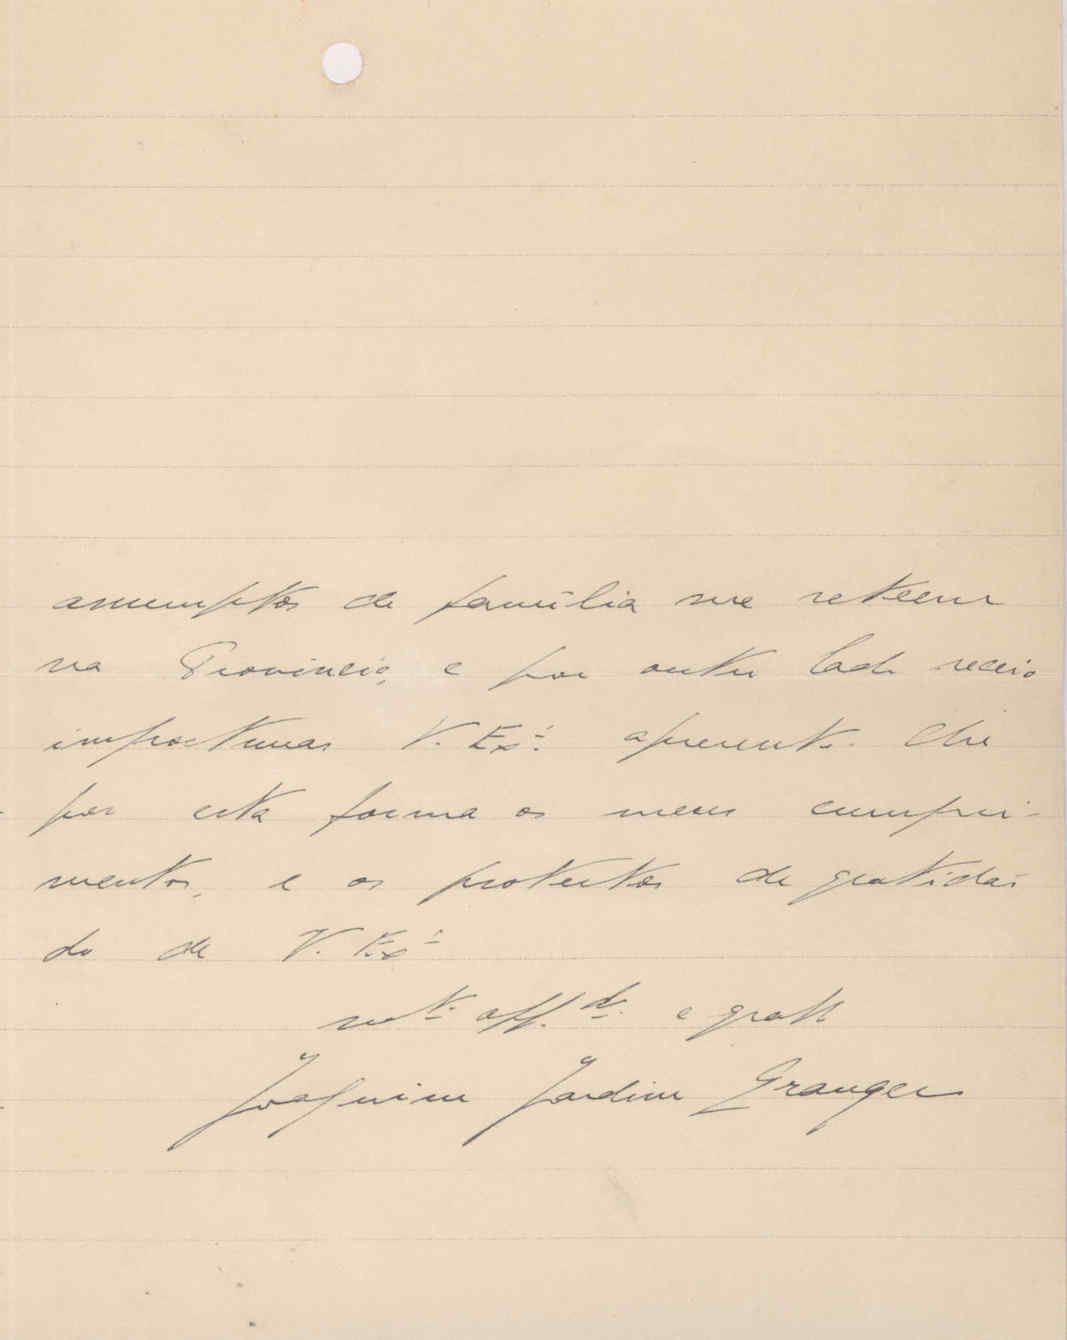 assumptos de familia me reteem
na Provincia, e por outro lado receio
importunar V. Exª. apresento-lhe
por esta forma os meus cumpri-
mentos, e os protestos de gratidão
do de V. Exª
mtº affdº. e grato
Joaquim Jardim Granger